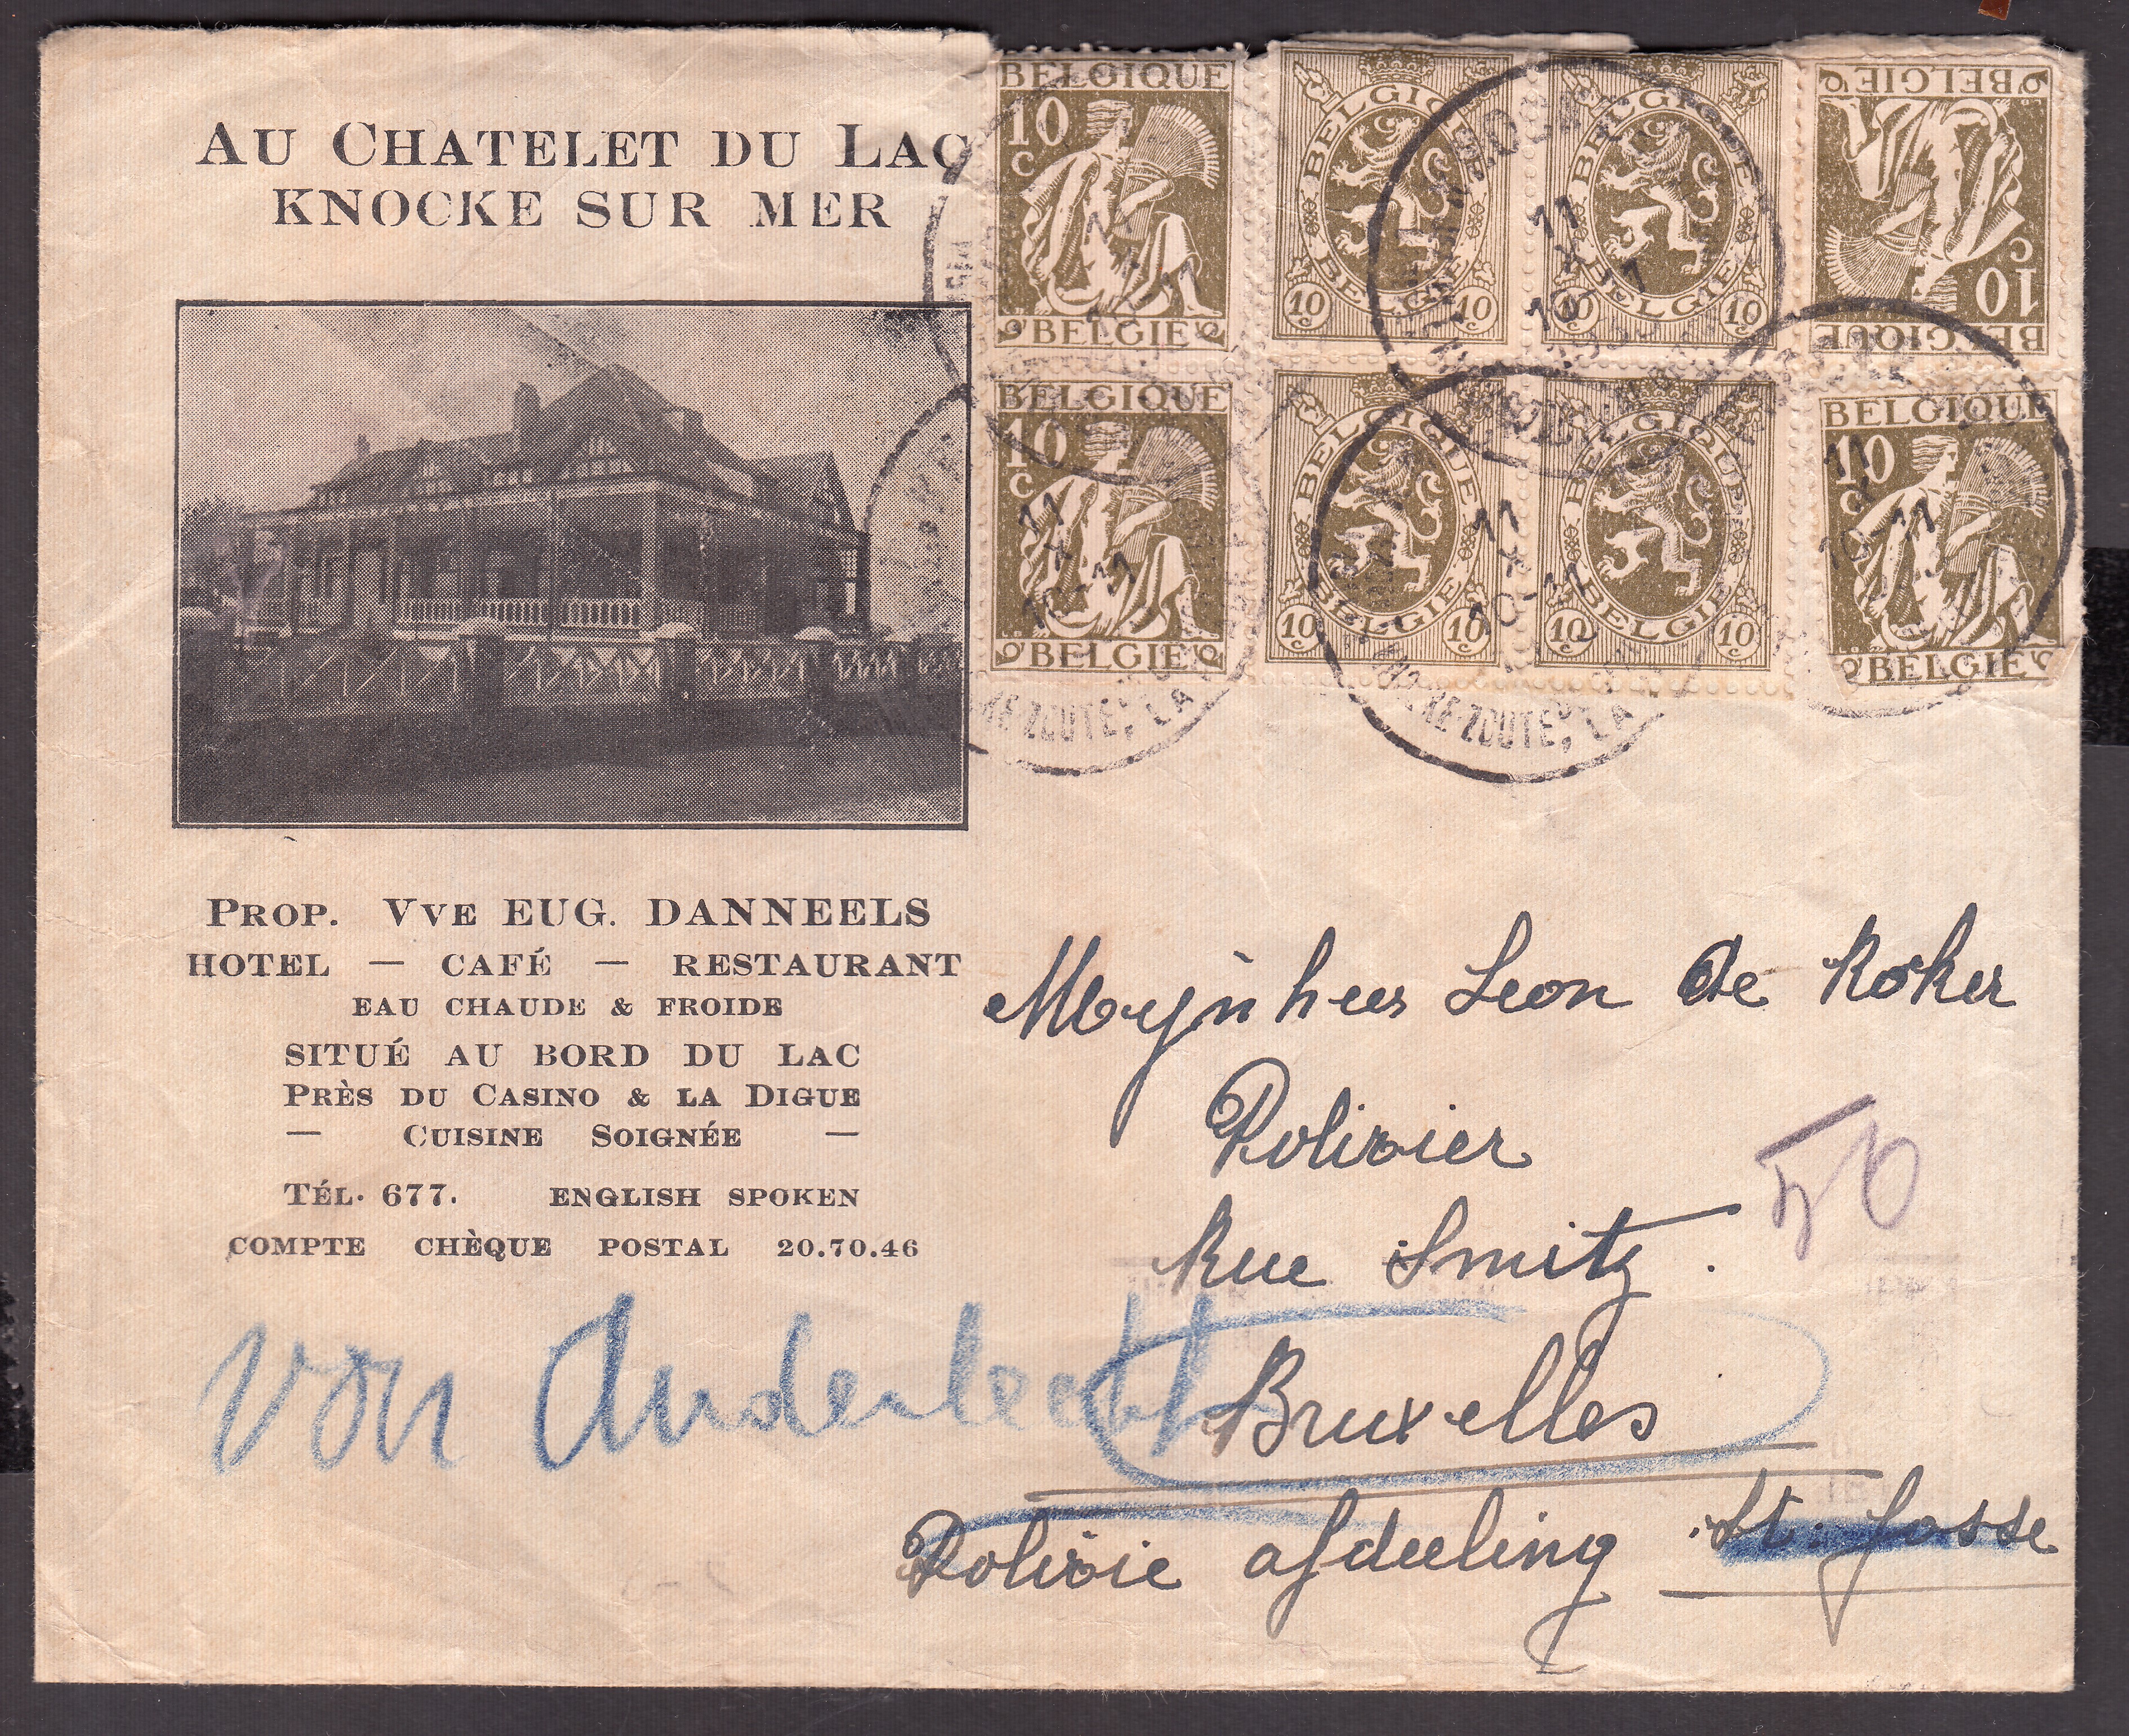 AU CHATELET DU LAC
KNOCKE SUR MER
BELGIQUE
10
C
BELGIE
BELGIQUE
BELGIE
10 10
C C
BELGIQUE
BELGIE
10 10
C C
BELGIQUE
10
C
BELGIE
BELGIQUE
10
C
BELGIE
BELGIQUE
BELGIE
10 10
C C
BELGIQUE
BELGIE
10 10
C C
BELGIQUE
10
C
BELGIE
11
X
10-11
11
X
10-11
11
X
10-11
11
X
10-11
KE-ZOUTE, LA
KE-ZOUTE, LA
PROP. VVE EUG. DANNEELS
HOTEL — CAFÉ — RESTAURANT
EAU CHAUDE & FROIDE
SITUÉ AU BORD DU LAC
PRÈS DU CASINO & LA DIGUE
— CUISINE SOIGNÉE —
TÉL. 677. ENGLISH SPOKEN
COMPTE CHÈQUE POSTAL 20.70.46
Mynheer Leon De Koker
Policier
50
Rue Smitz.
Bruxelles
Policie afdeeling St. Josse